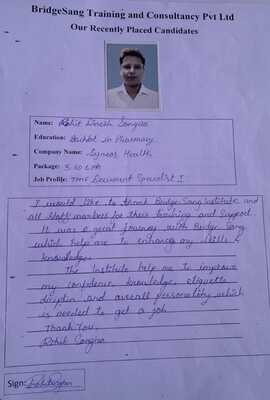 BridgeSang Training and Consultancy Pvt Ltd
Our Recently Placed Candidates
Name: Rohit Dinesh
Education: Bachlot in Pharmacy
Company Name: Syneos Health
Package: LPA
Job Profile: TMF Document Specialist I
I would like to thank Bridge Sang Institute and
all staff members for their training and support.
It was great journey with Bridge Sang
which help me to enhance my skills &
knowledge.
The Institute help me to improve
my confidence, knowledge, etiquette
and overall personality which
is needed to get a job.
Thank You.
Rohit
Sign: